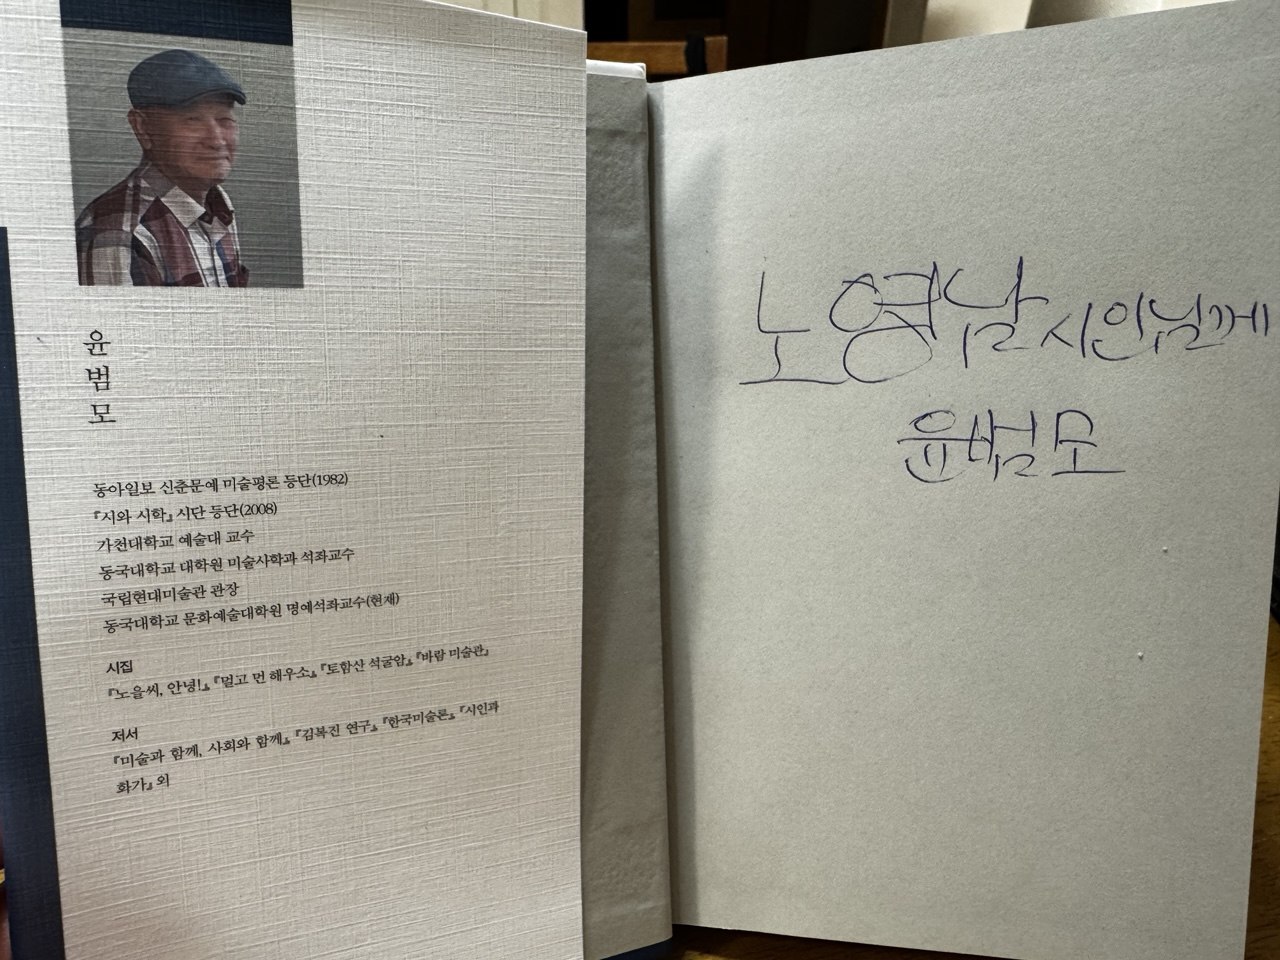 윤
범
모
동아일보 신춘문예 미술평론 등단(1982)
『시와 시학』 시단 등단(2008)
가천대학교 예술대 교수
동국대학교 대학원 미술사학과 석좌교수
국립현대미술관 관장
동국대학교 문화예술대학원 명예석좌교수(현재)
시집
『노을씨, 안녕!』, 『멀고 먼 해우소』, 『토함산 석굴암』, 『바람 미술관』
저서
『미술과 함께, 사회와 함께』, 『김복진 연구』, 『한국미술론』, 『시인과
화가』 외
노영날 시인님께
윤범모